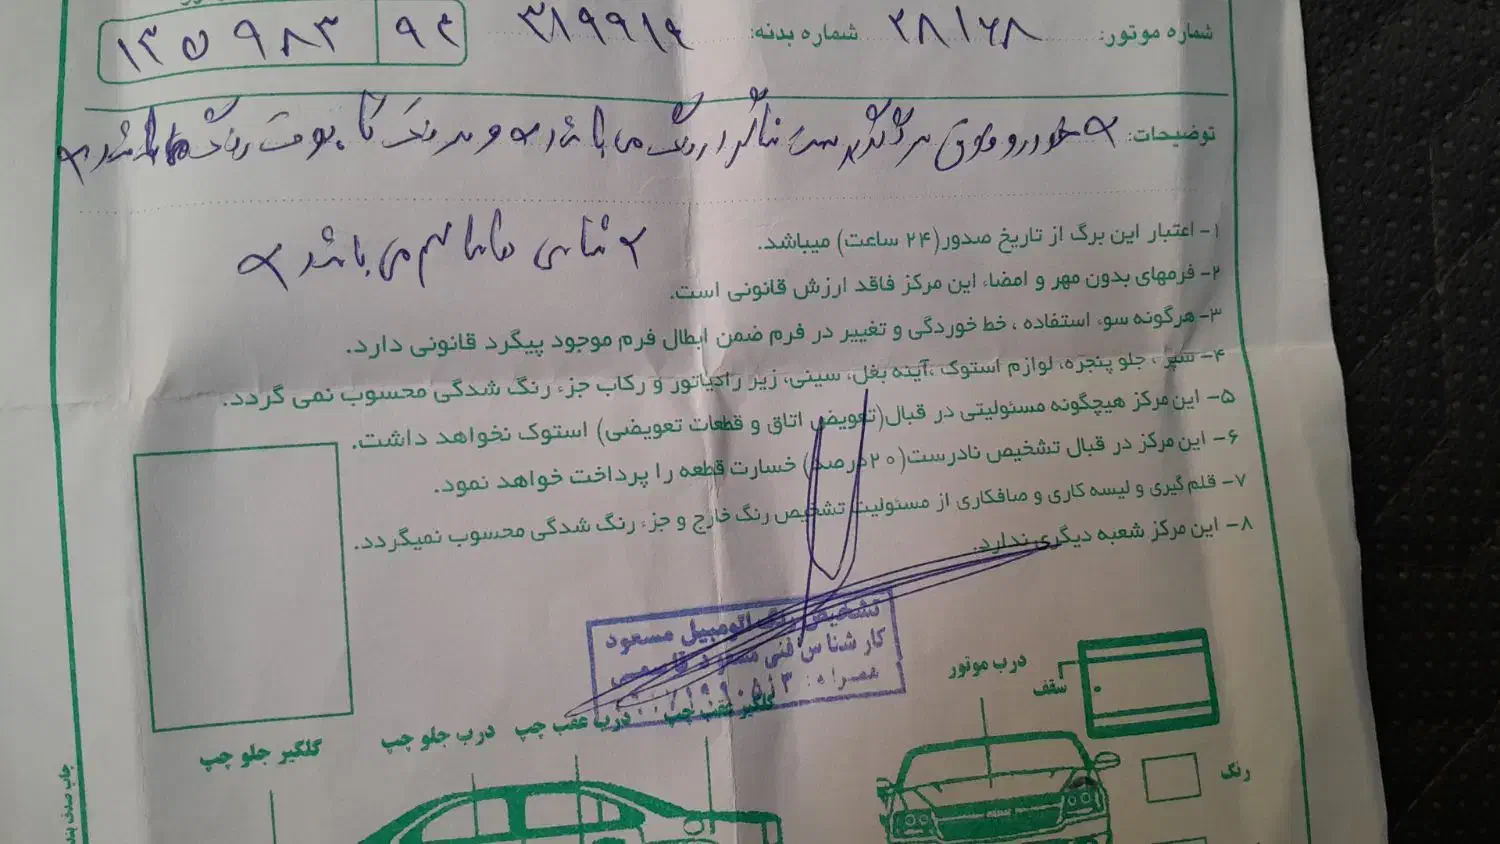 شماره موتور: ۲۸۱۶۸ شماره بدنه: ۳۱۹۹۱۶ ۹۴ ۱۳۵۹۸۳
توضیحات: خودرو فوق گلگیر سمت شاگرد رنگ می باشد و رنگ باشد
شاسی ها سالم می باشد
۱- اعتبار این برگ از تاریخ صدور(۲۴ ساعت) میباشد.
۲- فرمهای بدون مهر و امضاء این مرکز فاقد ارزش قانونی است.
۳- هرگونه سوء استفاده ، خط خوردگی و تغییر در فرم ضمن ابطال فرم موجود پیگرد قانونی دارد.
۴- سپر ، جلو پنجره، لوازم استوک ،آینه بغل، سینی، زیر رادیاتور و رکاب جزء رنگ شدگی محسوب نمی گردد.
۵- این مرکز هیچگونه مسئولیتی در قبال(تعویض اتاق و قطعات تعویضی) استوک نخواهد داشت.
۶- این مرکز در قبال تشخیص نادرست(۲۰درصد) خسارت قطعه را پرداخت خواهد نمود.
۷- قلم گیری و لیسه کاری و صافکاری از مسئولیت تشخیص رنگ خارج و جزء رنگ شدگی محسوب نمیگردد.
۸- این مرکز شعبه دیگری ندارد.
تشخیص رنگ اتومبیل مسعود
کارشناس فنی مسعود قاسمی
همراه:
درب موتور
سقف
گلگیر عقب چپ
درب عقب چپ
درب جلو چپ
گلگیر جلو چپ
رنگ
چاپ صدف